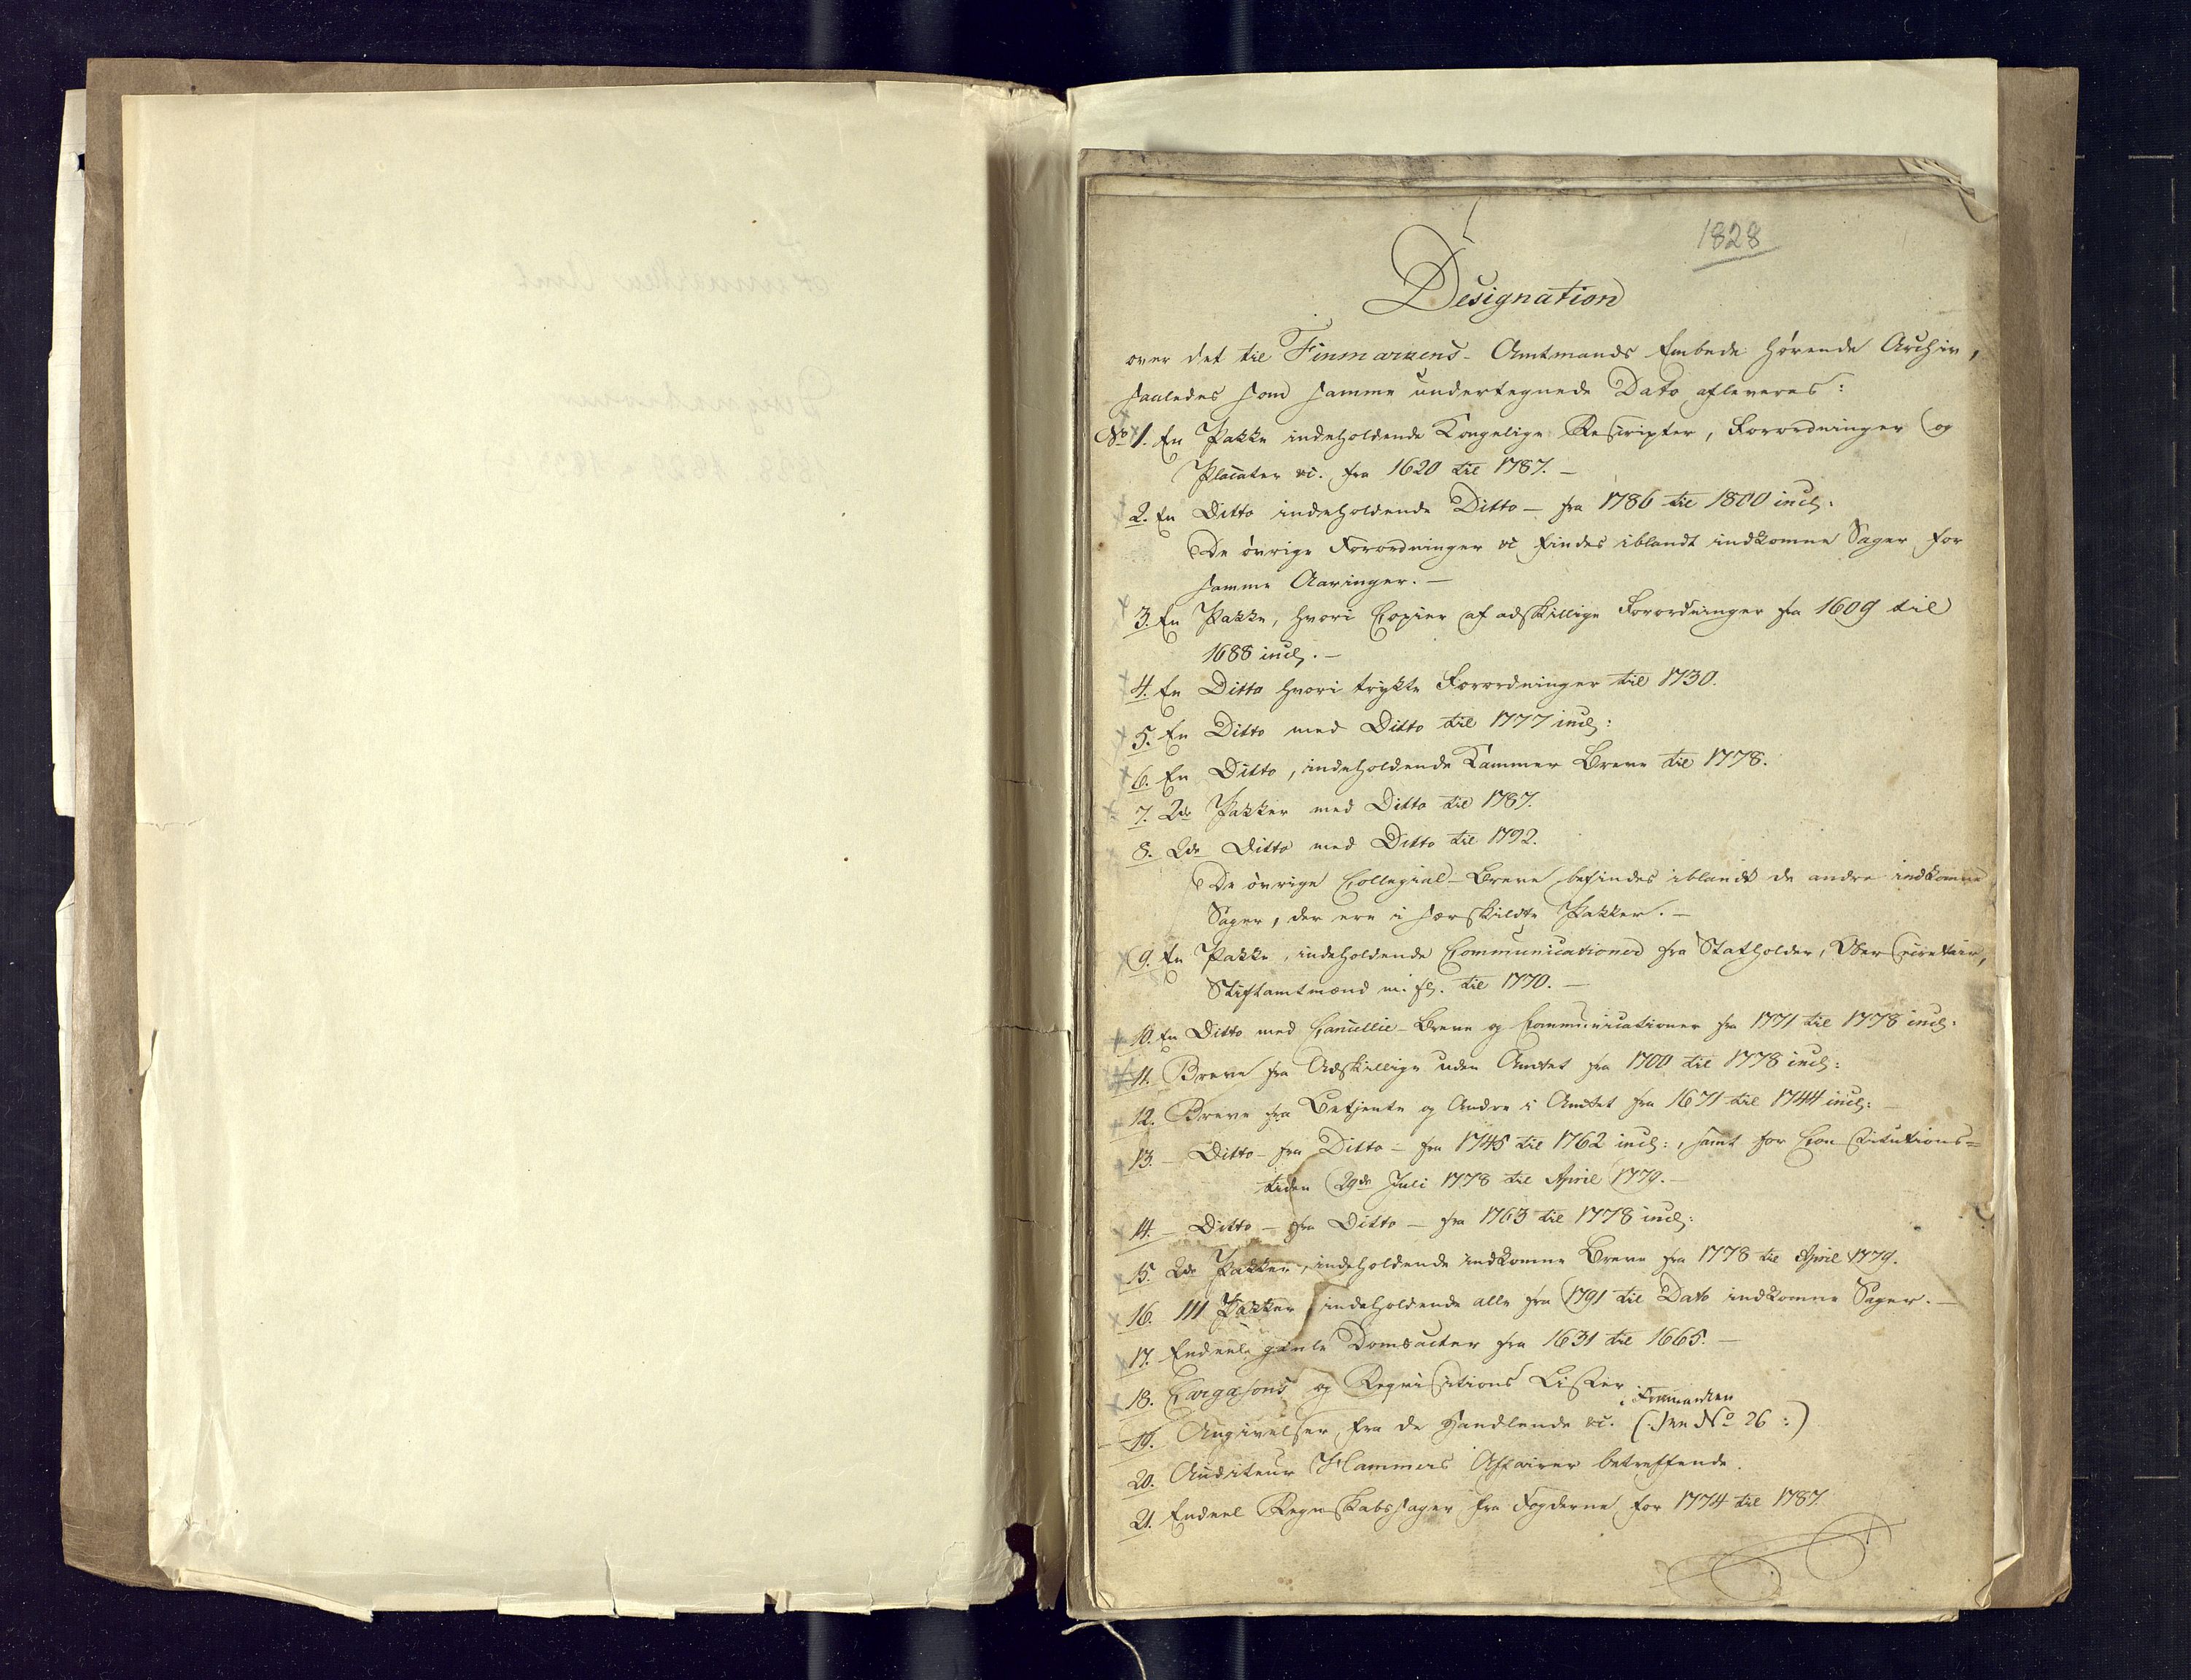 1828
Designation
over det til Finmarkens Amtmands Embede hørende Archiv,
saaledes som samme undertegnede Dato afleveres:
No 1. En Pakke indeholdende Kongelige Rescripter, Forordninger og
Placater &c. fra 1620 til 1787. —
2. En Ditto indeholdende Ditto — fra 1786 til 1800 incl:
De øvrige Forordninger &c findes iblandt indkomne Sager for
samme Aaringer. —
3. En Pakke, hvori Copier af adskillige Forordninger fra 1609 til
1688 incl. —
4. En Ditto hvori trykte Forordninger til 1730.
5. En Ditto med Ditto til 1777 incl:
6. En Ditto, indeholdende Kammer Breve til 1778.
7. 2de Pakker med Ditto til 1787.
8. 2de Ditto med Ditto til 1792.
De øvrige Collegial-Breve befindes iblandt de andre indkomne
Sager, der ere i særskildte Pakker. —
9. En Pakke, indeholdende Communicationer fra Statholder, Ober Secretair,
Stiftamtmænd m. fl. til 1770. —
10. En Ditto med Cancellie-Breve og Communicationer fra 1771 til 1778 incl:
11. Breve fra Adskillige uden Amtet fra 1700 til 1778 incl:
12. Breve fra Betjente og Andre i Amtet fra 1671 til 1744 incl:
13. — Ditto — fra Ditto — fra 1745 til 1762 incl:, samt for Constitutions=
tiden 29de Juli 1778 til April 1779. —
14. — Ditto — fra Ditto — fra 1763 til 1778 incl:
15. 2de Pakker, indeholdende indkomne Breve fra 1778 til April 1779.
16. 111 Pakker indeholdende alle fra 1791 til Dato indkomne Sager. —
17. Endeel gamle Domsacter fra 1631 til 1665. —
18. Cargasons og Reqvisitions Lister
i Finmarken
19. Angivelser fra de Handlende &c. (: See No 26 :)
20. Auditeur Hammers Affairer betreffende.
21. Endeel Regnskabssager fra Fogderne for 1774 til 1787.